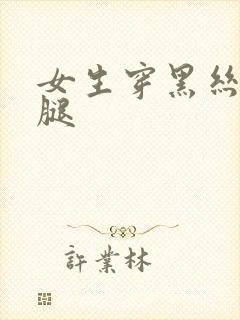 女生穿黑絲
腿
許業林